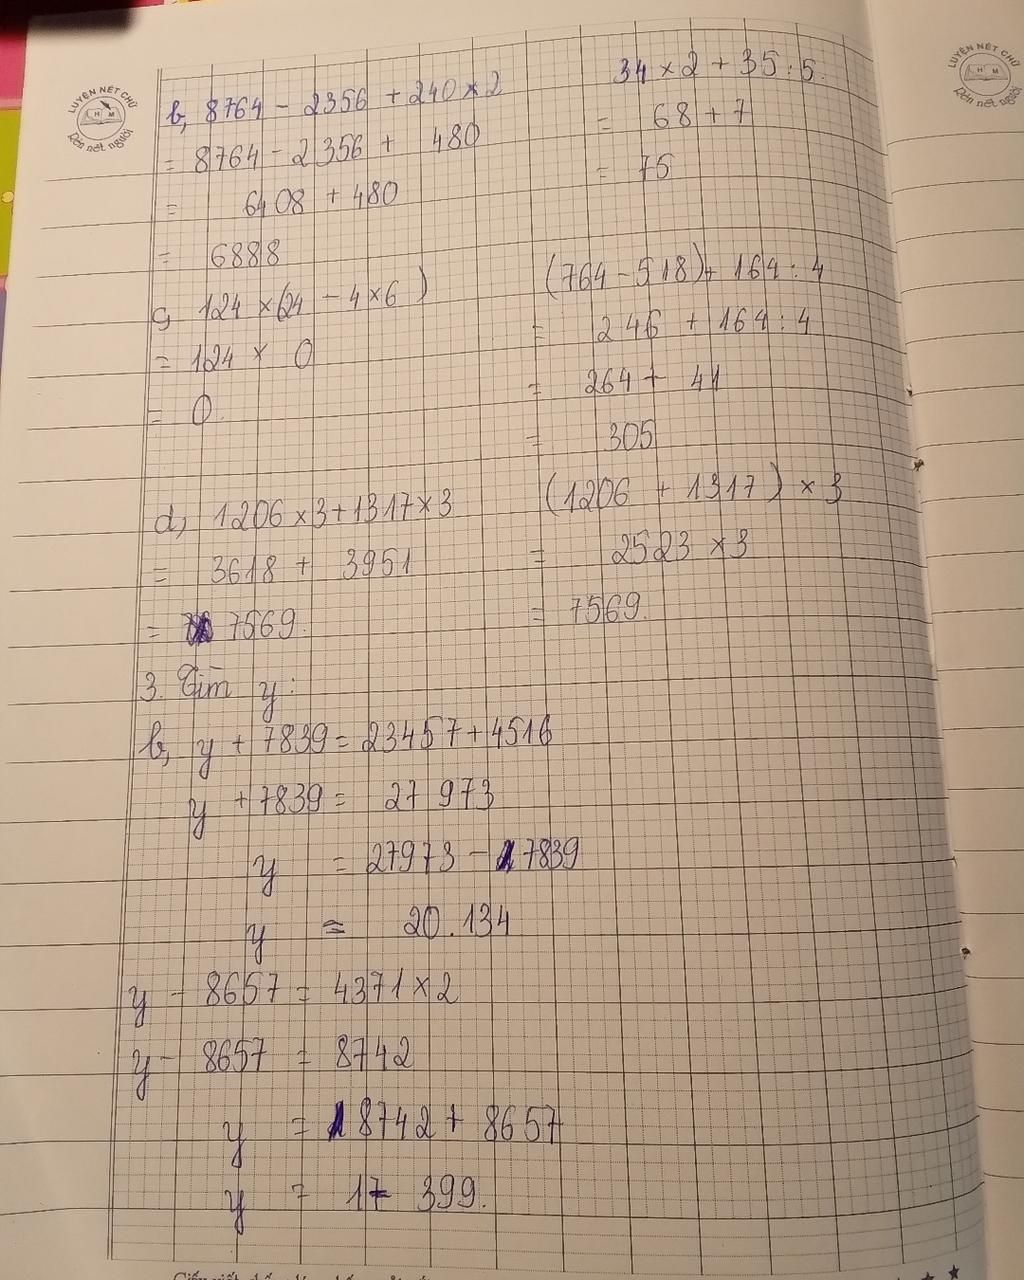 LUYỆN NÉT CHỮ
H M
Rèn nét người
LUYỆN NÉT CHỮ
H M
Rèn nét người
b, 8764 - 2356 + 240 × 2
= 8764 - 2356 + 480
= 6408 + 480
= 6888
34 × 2 + 35 : 5.
= 68 + 7
= 75
c, 124 × (24 - 4 × 6)
= 124 × 0
= 0.
(764 - 518) + 164 : 4
= 246 + 164 : 4
= 264 + 41
= 305
d, 1206 × 3 + 1317 × 3
= 3618 + 3951
= 7569.
(1206 + 1317) × 3
= 2523 × 3
= 7569.
3. Tìm y:
b, y + 7839 = 23457 + 4516
y + 7839 = 27 973
y = 27973 - 7839
y = 20.134
y - 8657 = 4371 × 2
y - 8657 = 8742
y = 8742 + 8657
y = 17 399.